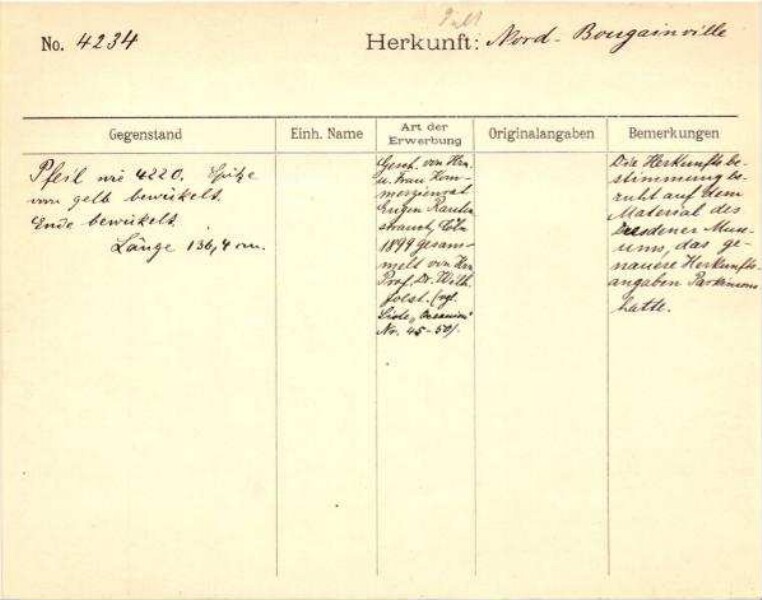 No. 4234
Herkunft: Nord-Bougainville
Gegenstand
Einh. Name
Art der
Erwerbung
Originalangaben
Bemerkungen
Pfeil wie 4220. Spitze
von gelb bewickelt.
Ende bewickelt.
Länge 136,4 cm.
Gesch. von Hrn.
u. Frau Kom-
merzienrat
Eugen Rauten-
strauch, Cöln
1899 gesam-
melt von Hrn
Prof. Dr. Wilh.
Joest. (vgl.
Liste „Oceanien"
Nr. 45-50).
Die Herkunftsbe-
stimmung be-
ruht auf dem
Material des
Dresdener Muse-
ums, das ge-
nauere Herkunfts-
angaben Parkinsons
hatte.